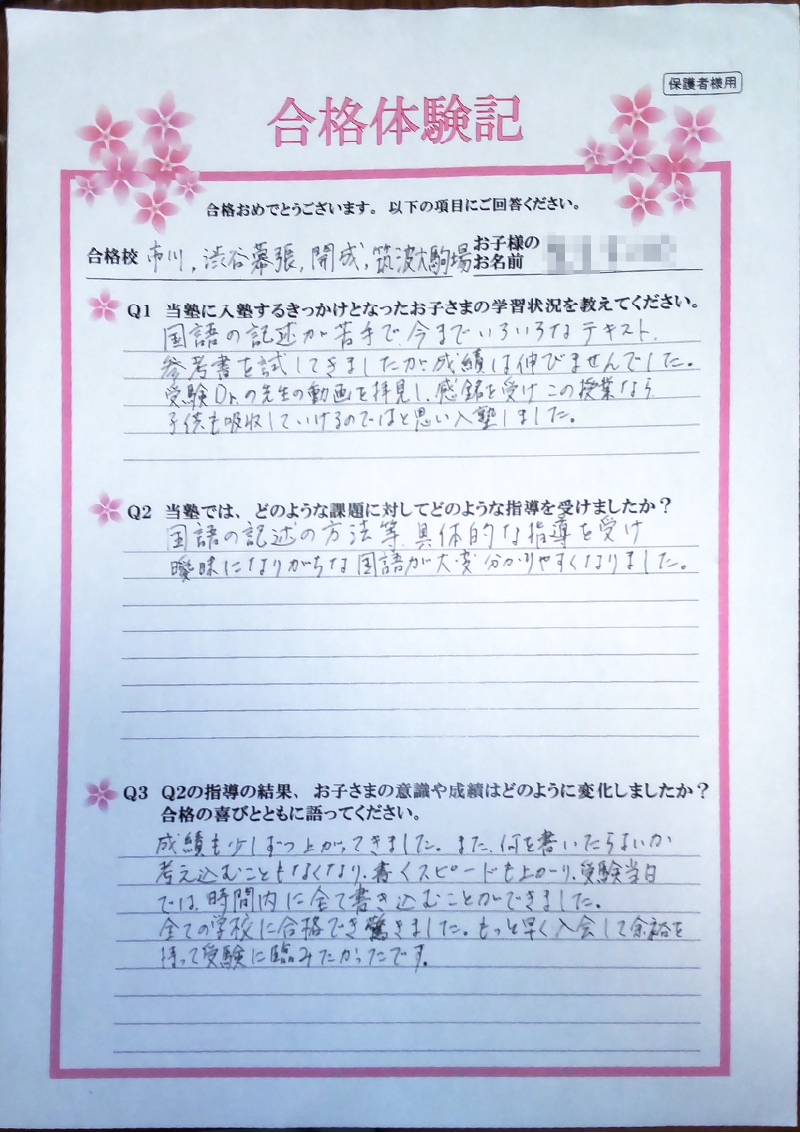 保護者様用
合格体験記
合格おめでとうございます。以下の項目にご回答ください。
合格校 市川,渋谷幕張,開成,筑波大駒場 お子様のお名前
Q1 当塾に入塾するきっかけとなったお子さまの学習状況を教えてください。
国語の記述が苦手で、今までいろいろなテキスト、
参考書を試してきましたが、成績は伸びませんでした。
受験Dr.の先生の動画を拝見し、感銘を受けこの授業なら
子供も吸収していけるのではと思い入塾しました。
Q2 当塾では、どのような課題に対してどのような指導を受けましたか？
国語の記述の方法等、具体的な指導を受け
曖昧になりがちな国語が大変分かりやすくなりました。
Q3 Q2の指導の結果、お子さまの意識や成績はどのように変化しましたか？
合格の喜びとともに語ってください。
成績も少しずつ上がってきました。また、何を書いたらよいか
考え込むこともなくなり、書くスピードも上がり、受験当日
では、時間内に全て書き込むことができました。
全ての学校に合格でき驚きました。もっと早く入会して余裕を
持って受験に臨みたかったです。